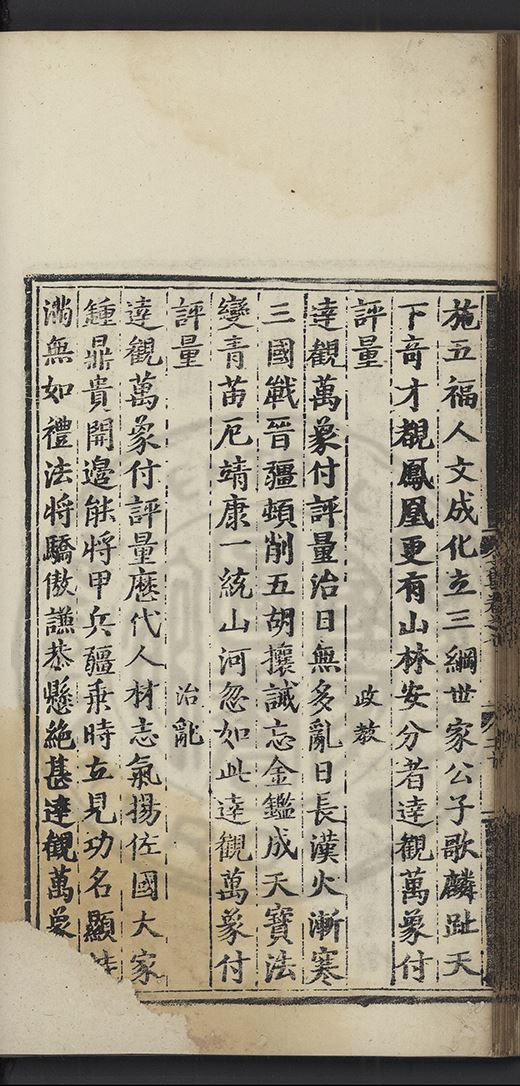 施五福人文成化立三綱世家公子歌麟趾天
下奇才覩鳳凰更有山林安分者達觀萬象付
評量 政教
達觀萬象付評量治日無多亂日長漢火漸寒
三國戰晉疆頓削五胡攘誡忘金鑑成天寶法
變青苗厄靖康一統山河忽如此達觀萬象付
評量 治亂
達觀萬象付評量歷代人材志氣揚佐國大家
鍾鼎貴開邊能將甲兵疆乘時互見功名顯
滿無如禮法將驕傲謙恭懸絕甚達觀萬象